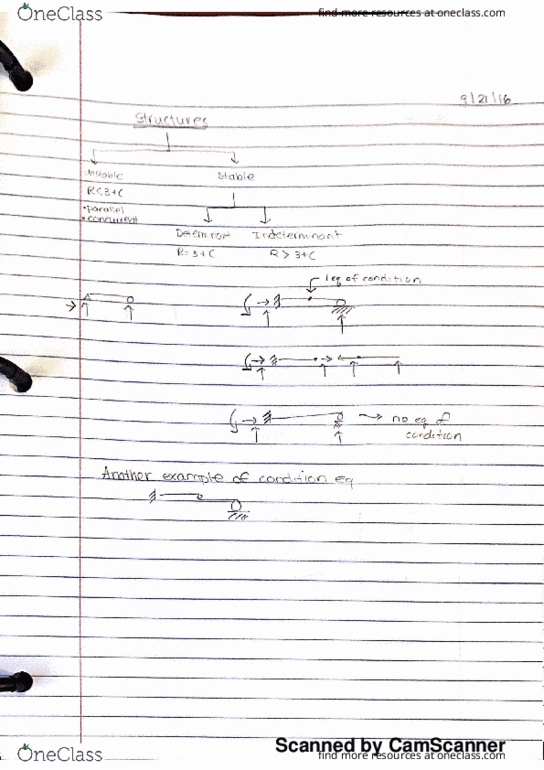 OneClass
find more resources at oneclass.com
9/21/16
Structures
Unstable
Stable
R<3+C
• parallel
• concurrent
Indeterminant
R=3+C
R > 3+C
1 eq of condition
no eq of
condition
Another example of condition eq
Scanned by CamScanner
OneClass
find more resources at oneclass.com